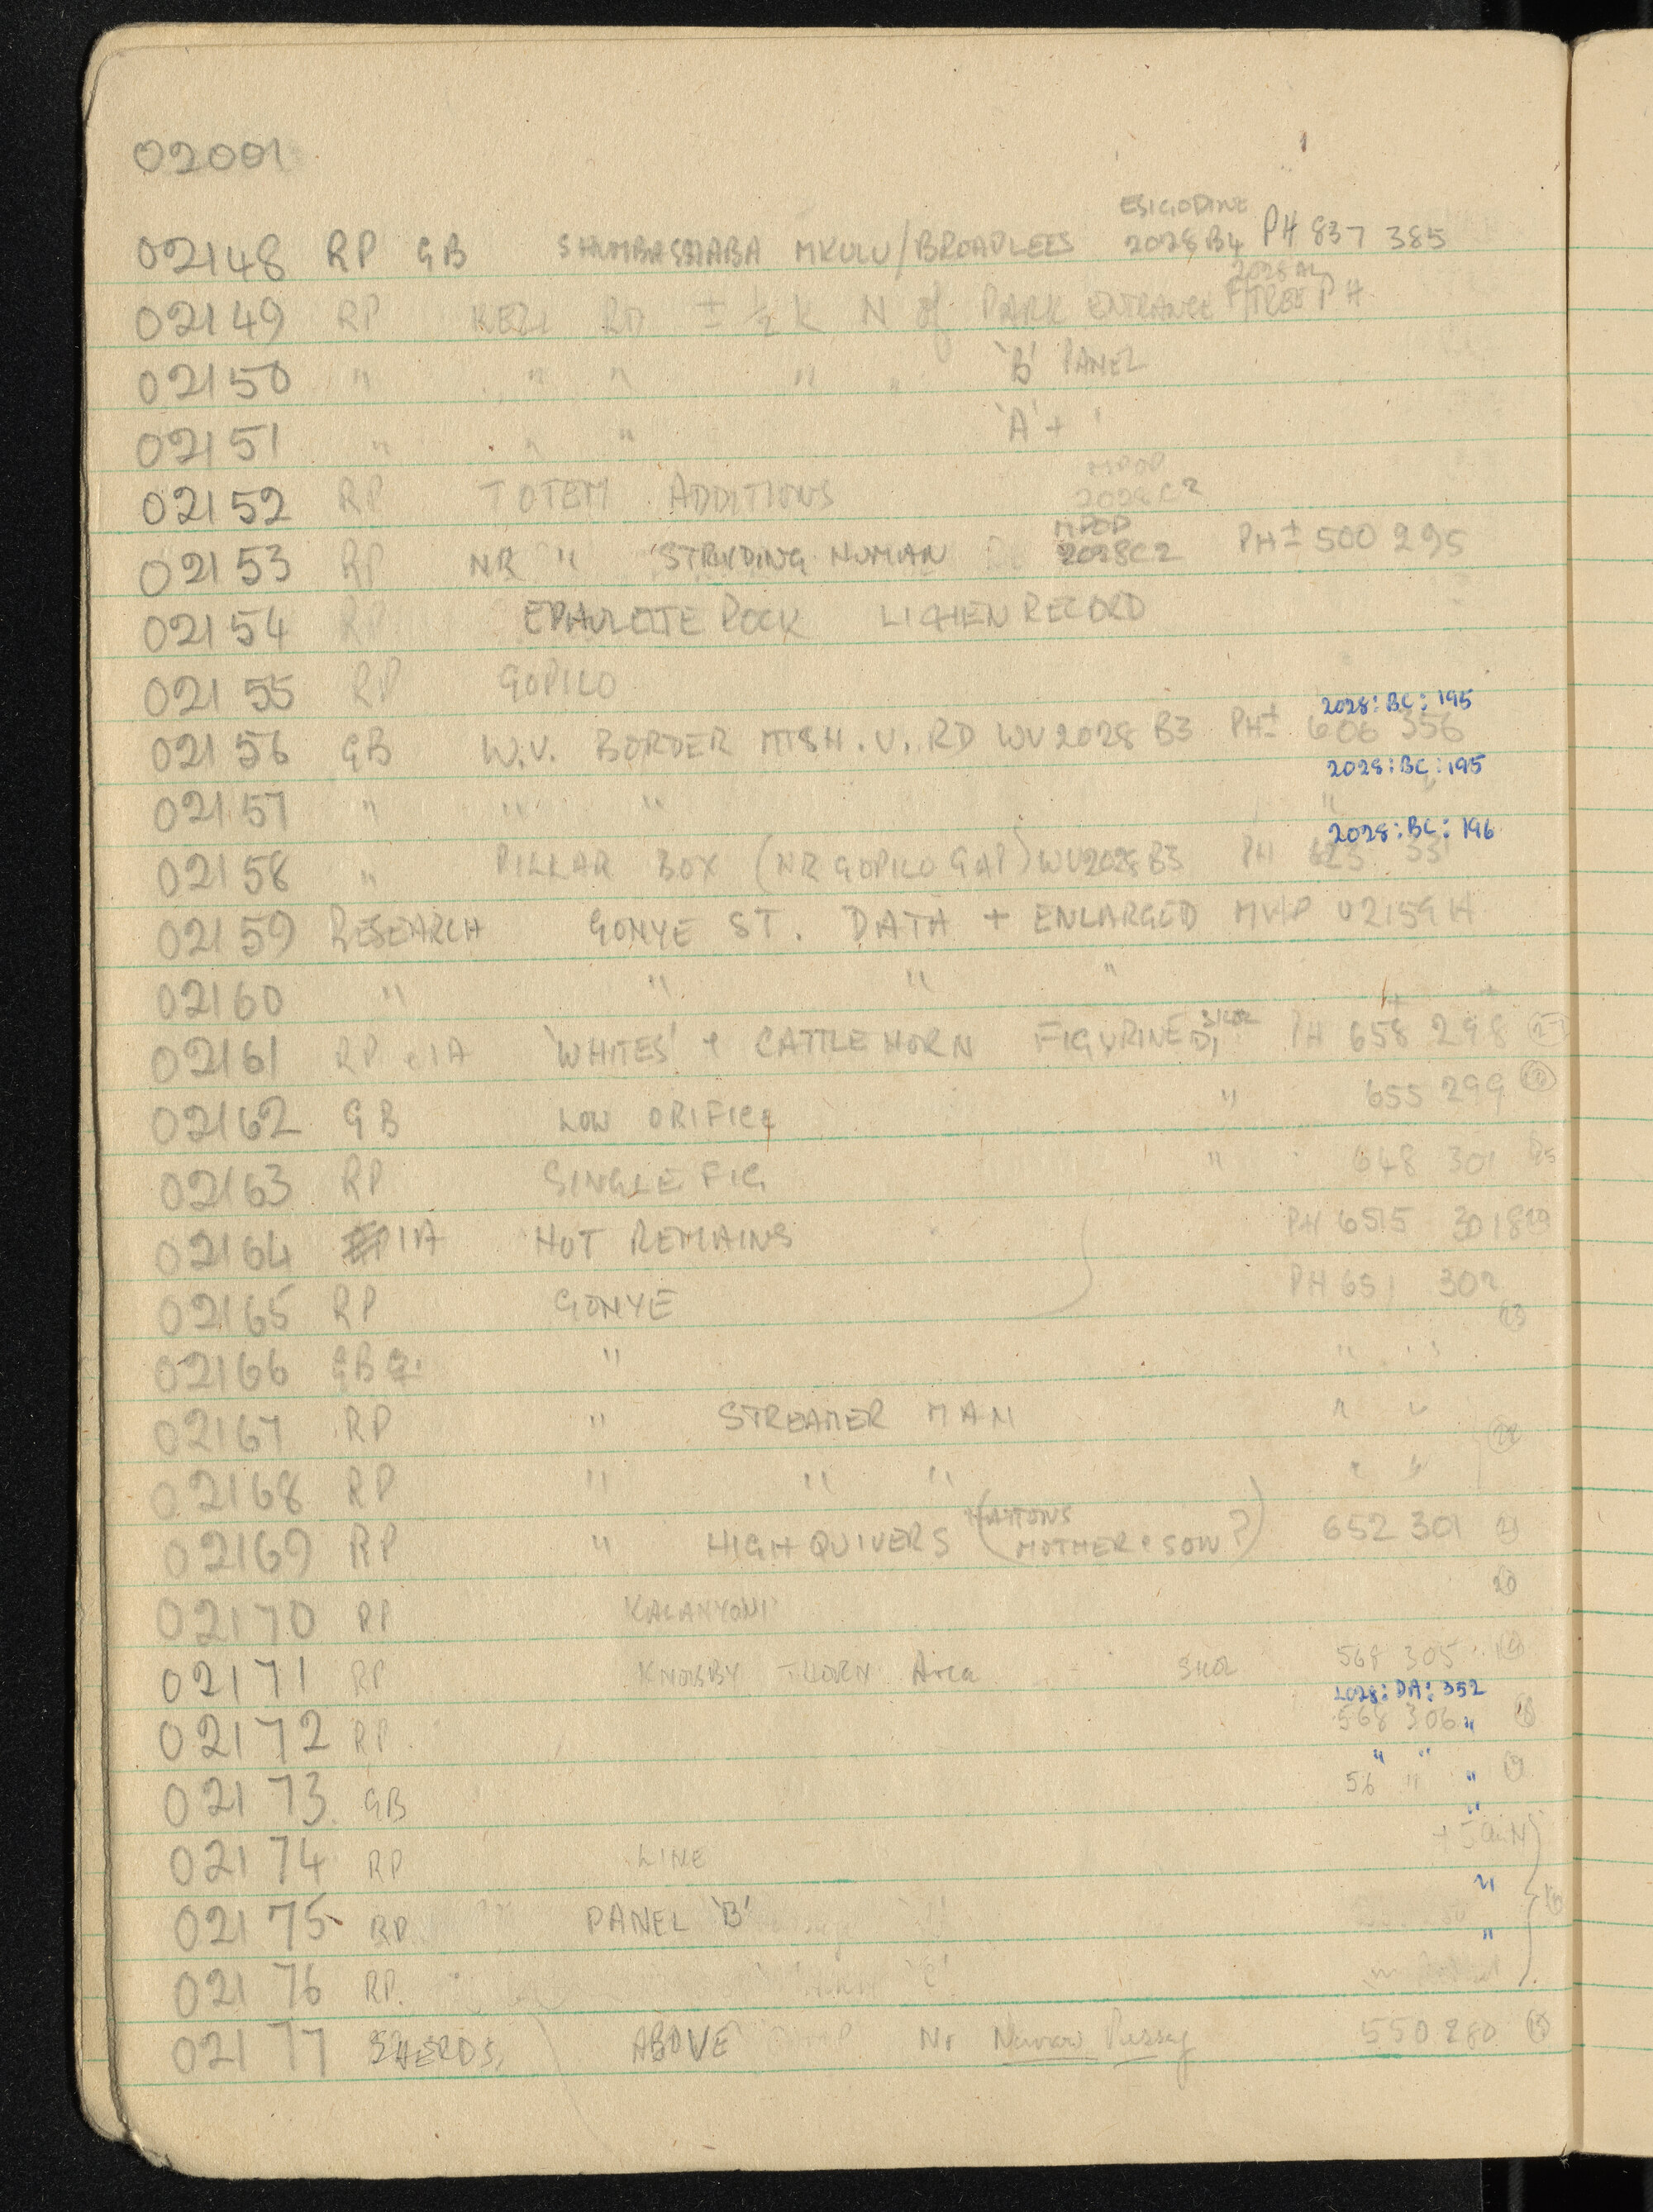 02001
ESIGODINE
02148 RP GB SHUMBASHABA MKULU/BROADLEES 2028 B4 PH 837 385
2028 A4
02149 RP KEZI RD ± ½ K N of PARK ENTRANCE F/TREE PH
02150 " " " " " 'B' PANEL
02151 " " " 'A' + '
02152 RP TOTEM ADDITIONS 2028 C2
MPOP
02153 RP NR " STRIDING HUMAN 2028C2 PH ± 500 295
02154 RP EPAULETTE ROCK LICHEN RECORD
02155 RP GOPILO
2028:BC:195
02156 GB W.V. BORDER MTSH.U. RD WV2028 B3 PH± 606 356
2028:BC:195
02157 " " " " "
2028:BC:196
02158 " PILLAR BOX (NR GOPILO GAP) WV2028B3 PH 623 331
02159 RESEARCH GONYE ST. DATA + ENLARGED MVP 02159H
02160 " " " "
02161 RP & IA 'WHITES' & CATTLE HORN FIGURINED, PH 658 298
02162 GB LOW ORIFICE " 655 299
02163 RP SINGLE FIG " 648 301
02164 IA HUT REMAINS PH 6515 3018
02165 RP GONYE PH 651 302
23
02166 GB " " "
02167 RP " STREAMER MAN " "
22
02168 RP " " " " "
02169 RP " HIGH QUIVERS (HATTONS MOTHER & SON?) 652 301 21
20
02170 RP KALANYONI
02171 RP KNOBBY THORN Area SHOL 568 305 19
2028:DA:352
02172 RP 568 306 " 18
" "
02173 GB 56 " "
"
02174 RP LINE
"
02175 RP PANEL 'B'
"
02176 RP 'C'
02177 SHERDS, ABOVE Nr Narrow Passag 550 280 15